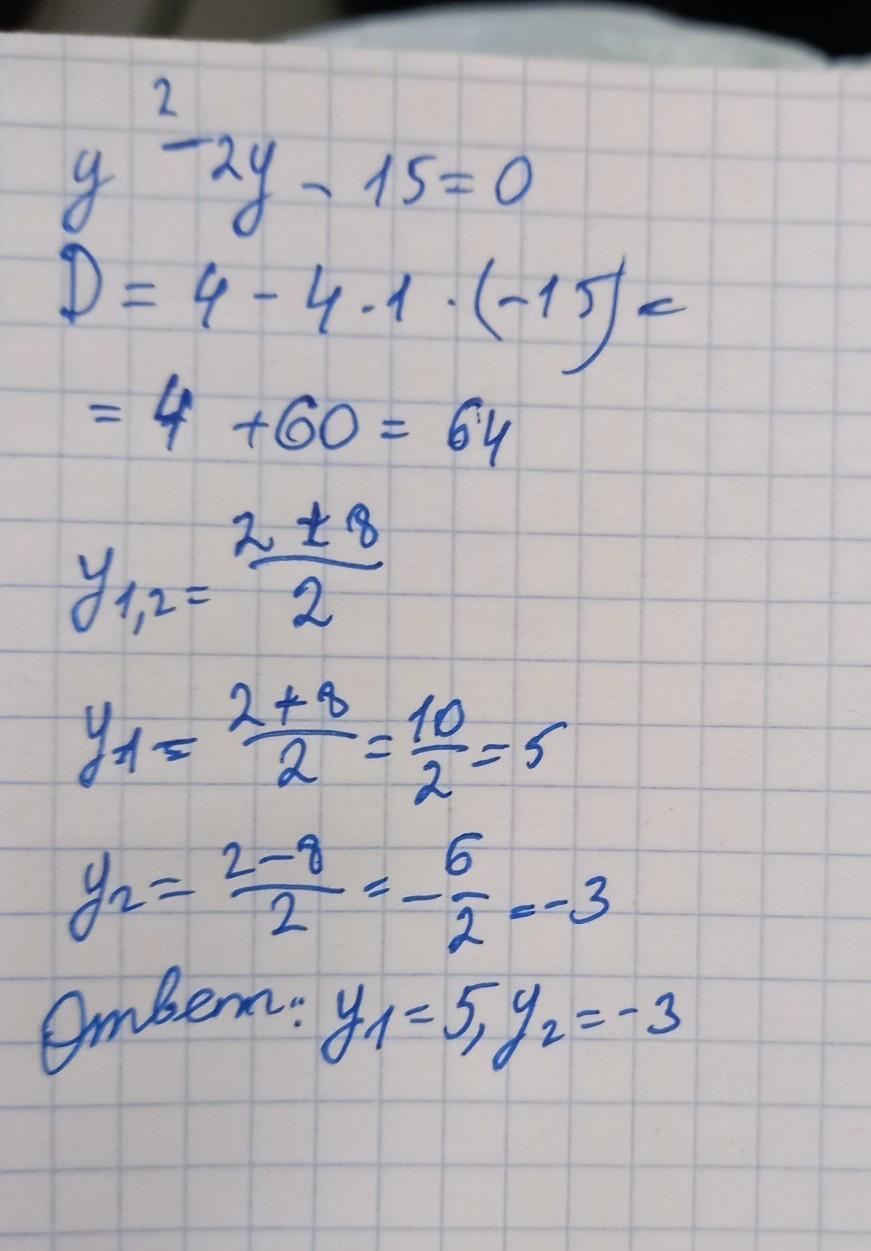 y² - 2y - 15 = 0
D = 4 - 4 · 1 · (-15) =
= 4 + 60 = 64
y₁,₂ = (2 ± 8)/2
y₁ = (2 + 8)/2 = 10/2 = 5
y₂ = (2 - 8)/2 = -6/2 = -3
Ответ: y₁ = 5, y₂ = -3